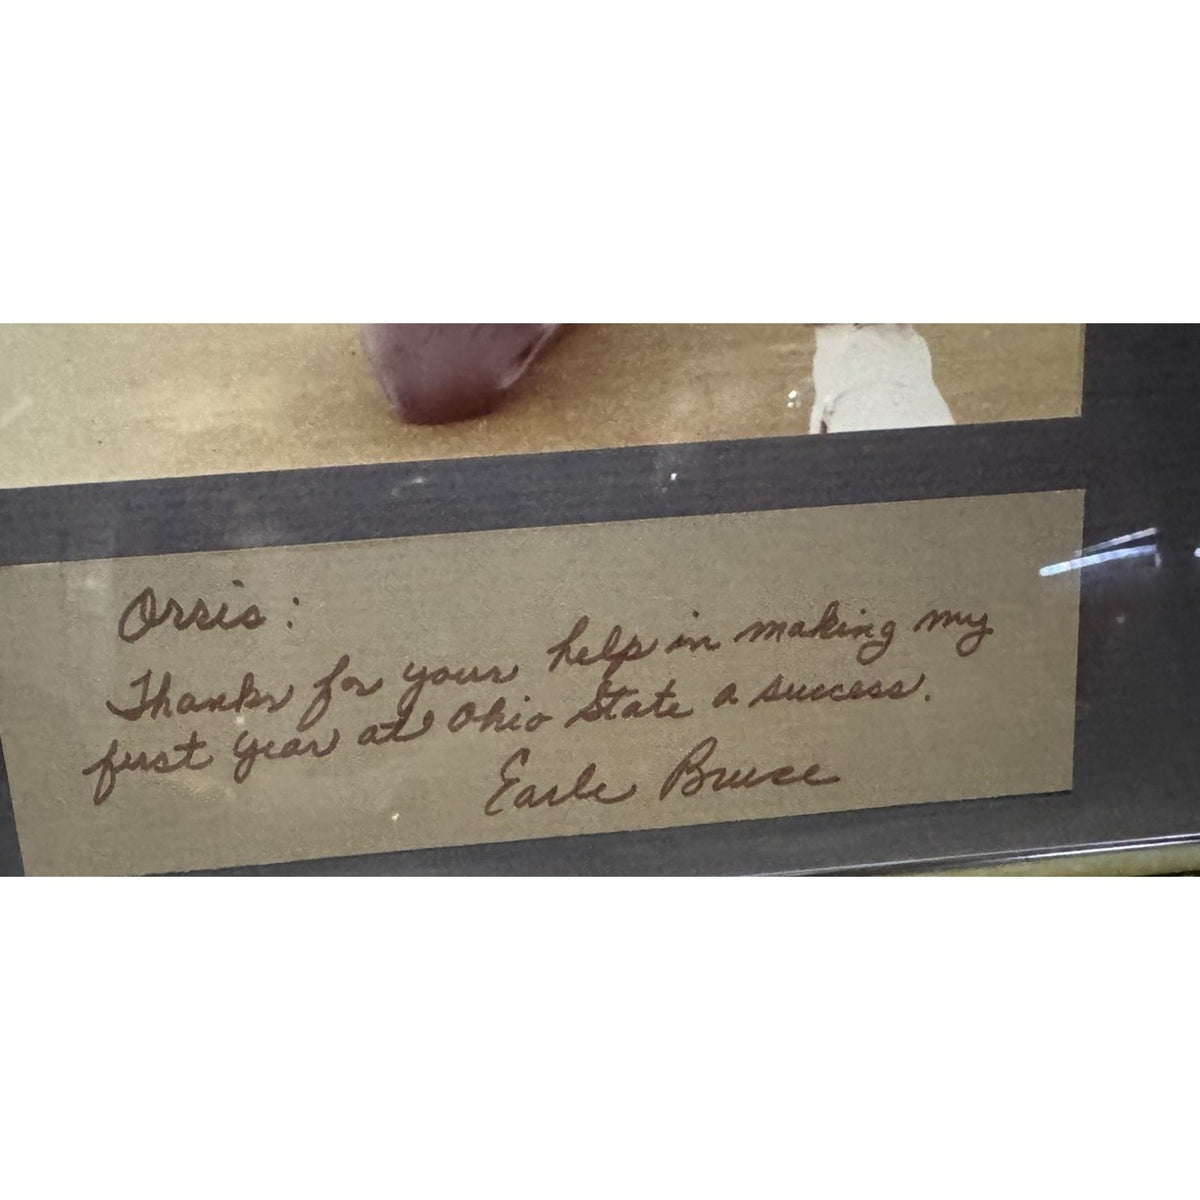 Orris:
Thanks for your help in making my
first year at Ohio State a success.
Earle Bruce